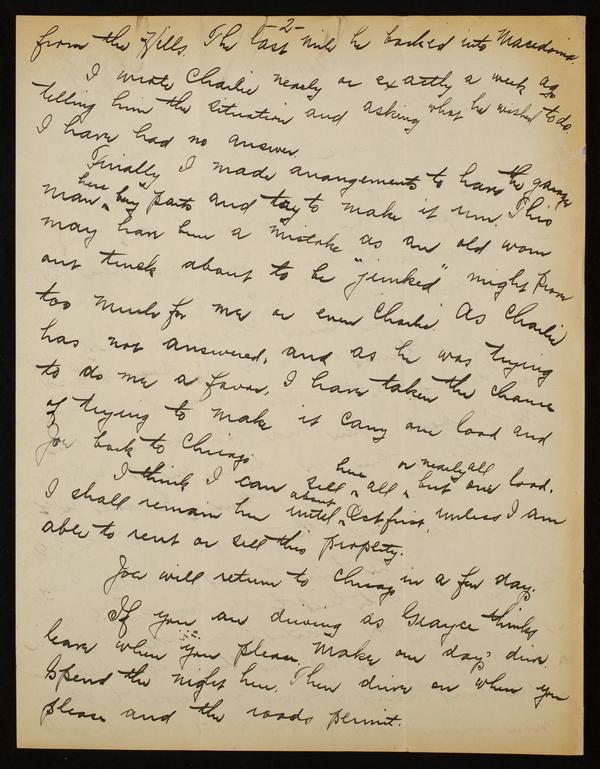 -2-
from the Hills. The last mile he backed into Macedonia.
I wrote Charlie nearly or exactly a week ago
telling him the situation and asking what he wished to do.
I have had no answer.
Finally I made arrangements to have the garage
man here buy parts and try to make it run. This
may have been a mistake as an old worn
out truck about to be "junked" might prove
too much for me or even Charlie. As Charlie
has not answered, and as he was trying
to do me a favor, I have taken the chance
of trying to make it carry one load and
Joe back to Chicago.
I think I can sell here all or nearly all but one load.
I shall remain here until about Oct. first, unless I am
able to rent or sell this property.
Joe will return to Chicago in a few days.
If you are driving as Grayce thinks
leave when you please. Make one day's drive.
Spend the night here. Then drive on when you
please and the roads permit.